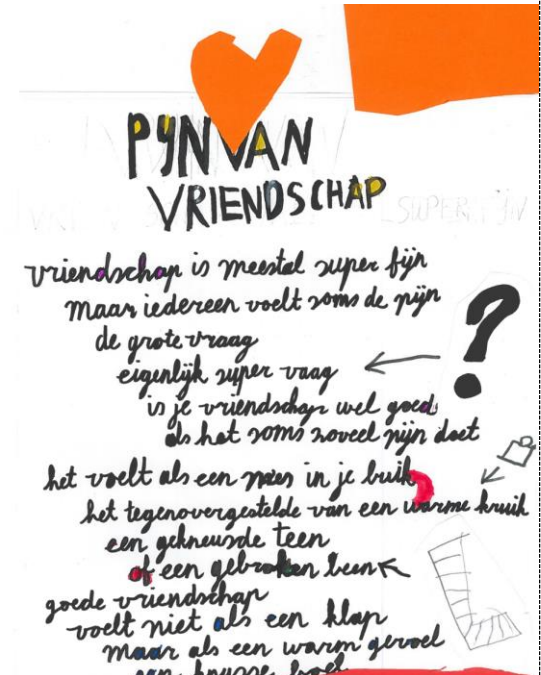 PIJN VAN
VRIENDSCHAP
vriendschap is meestal super fijn
maar iedereen voelt soms de pijn
de grote vraag
eigenlijk super vaag
?
is je vriendschap wel goed
als het soms zoveel pijn doet
het voelt als een mes in je buik
het tegenovergestelde van een warme kruik
een gekneusde teen
of een gebroken been
goede vriendschap
voelt niet als een klap
maar als een warm gevoel
een knusse boel